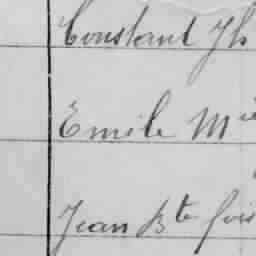 Constant Jh
Emile Mie
Jean Bte fois